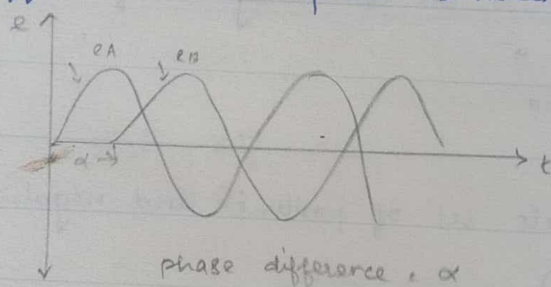 e
eA eB
α
t
phase difference, α